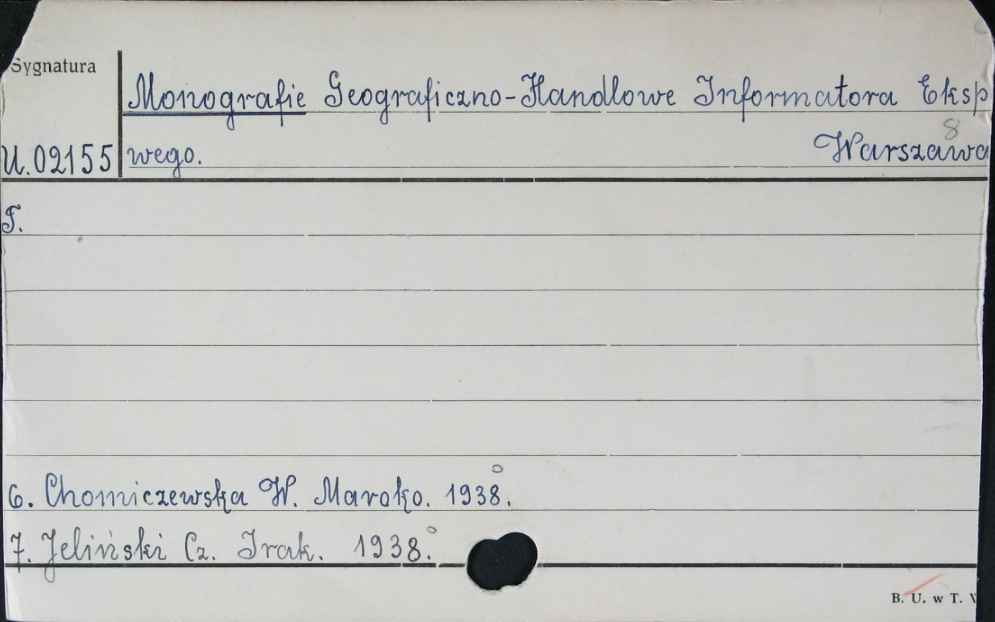 Sygnatura
Monografie Geograficzno-Handlowe Informatora Eksp
8
U.02155 wego. Warszawa
T.
6. Chomiczewska W. Maroko. 1938.
7. Jeliński Cz. Irak. 1938.
B. U. w T.